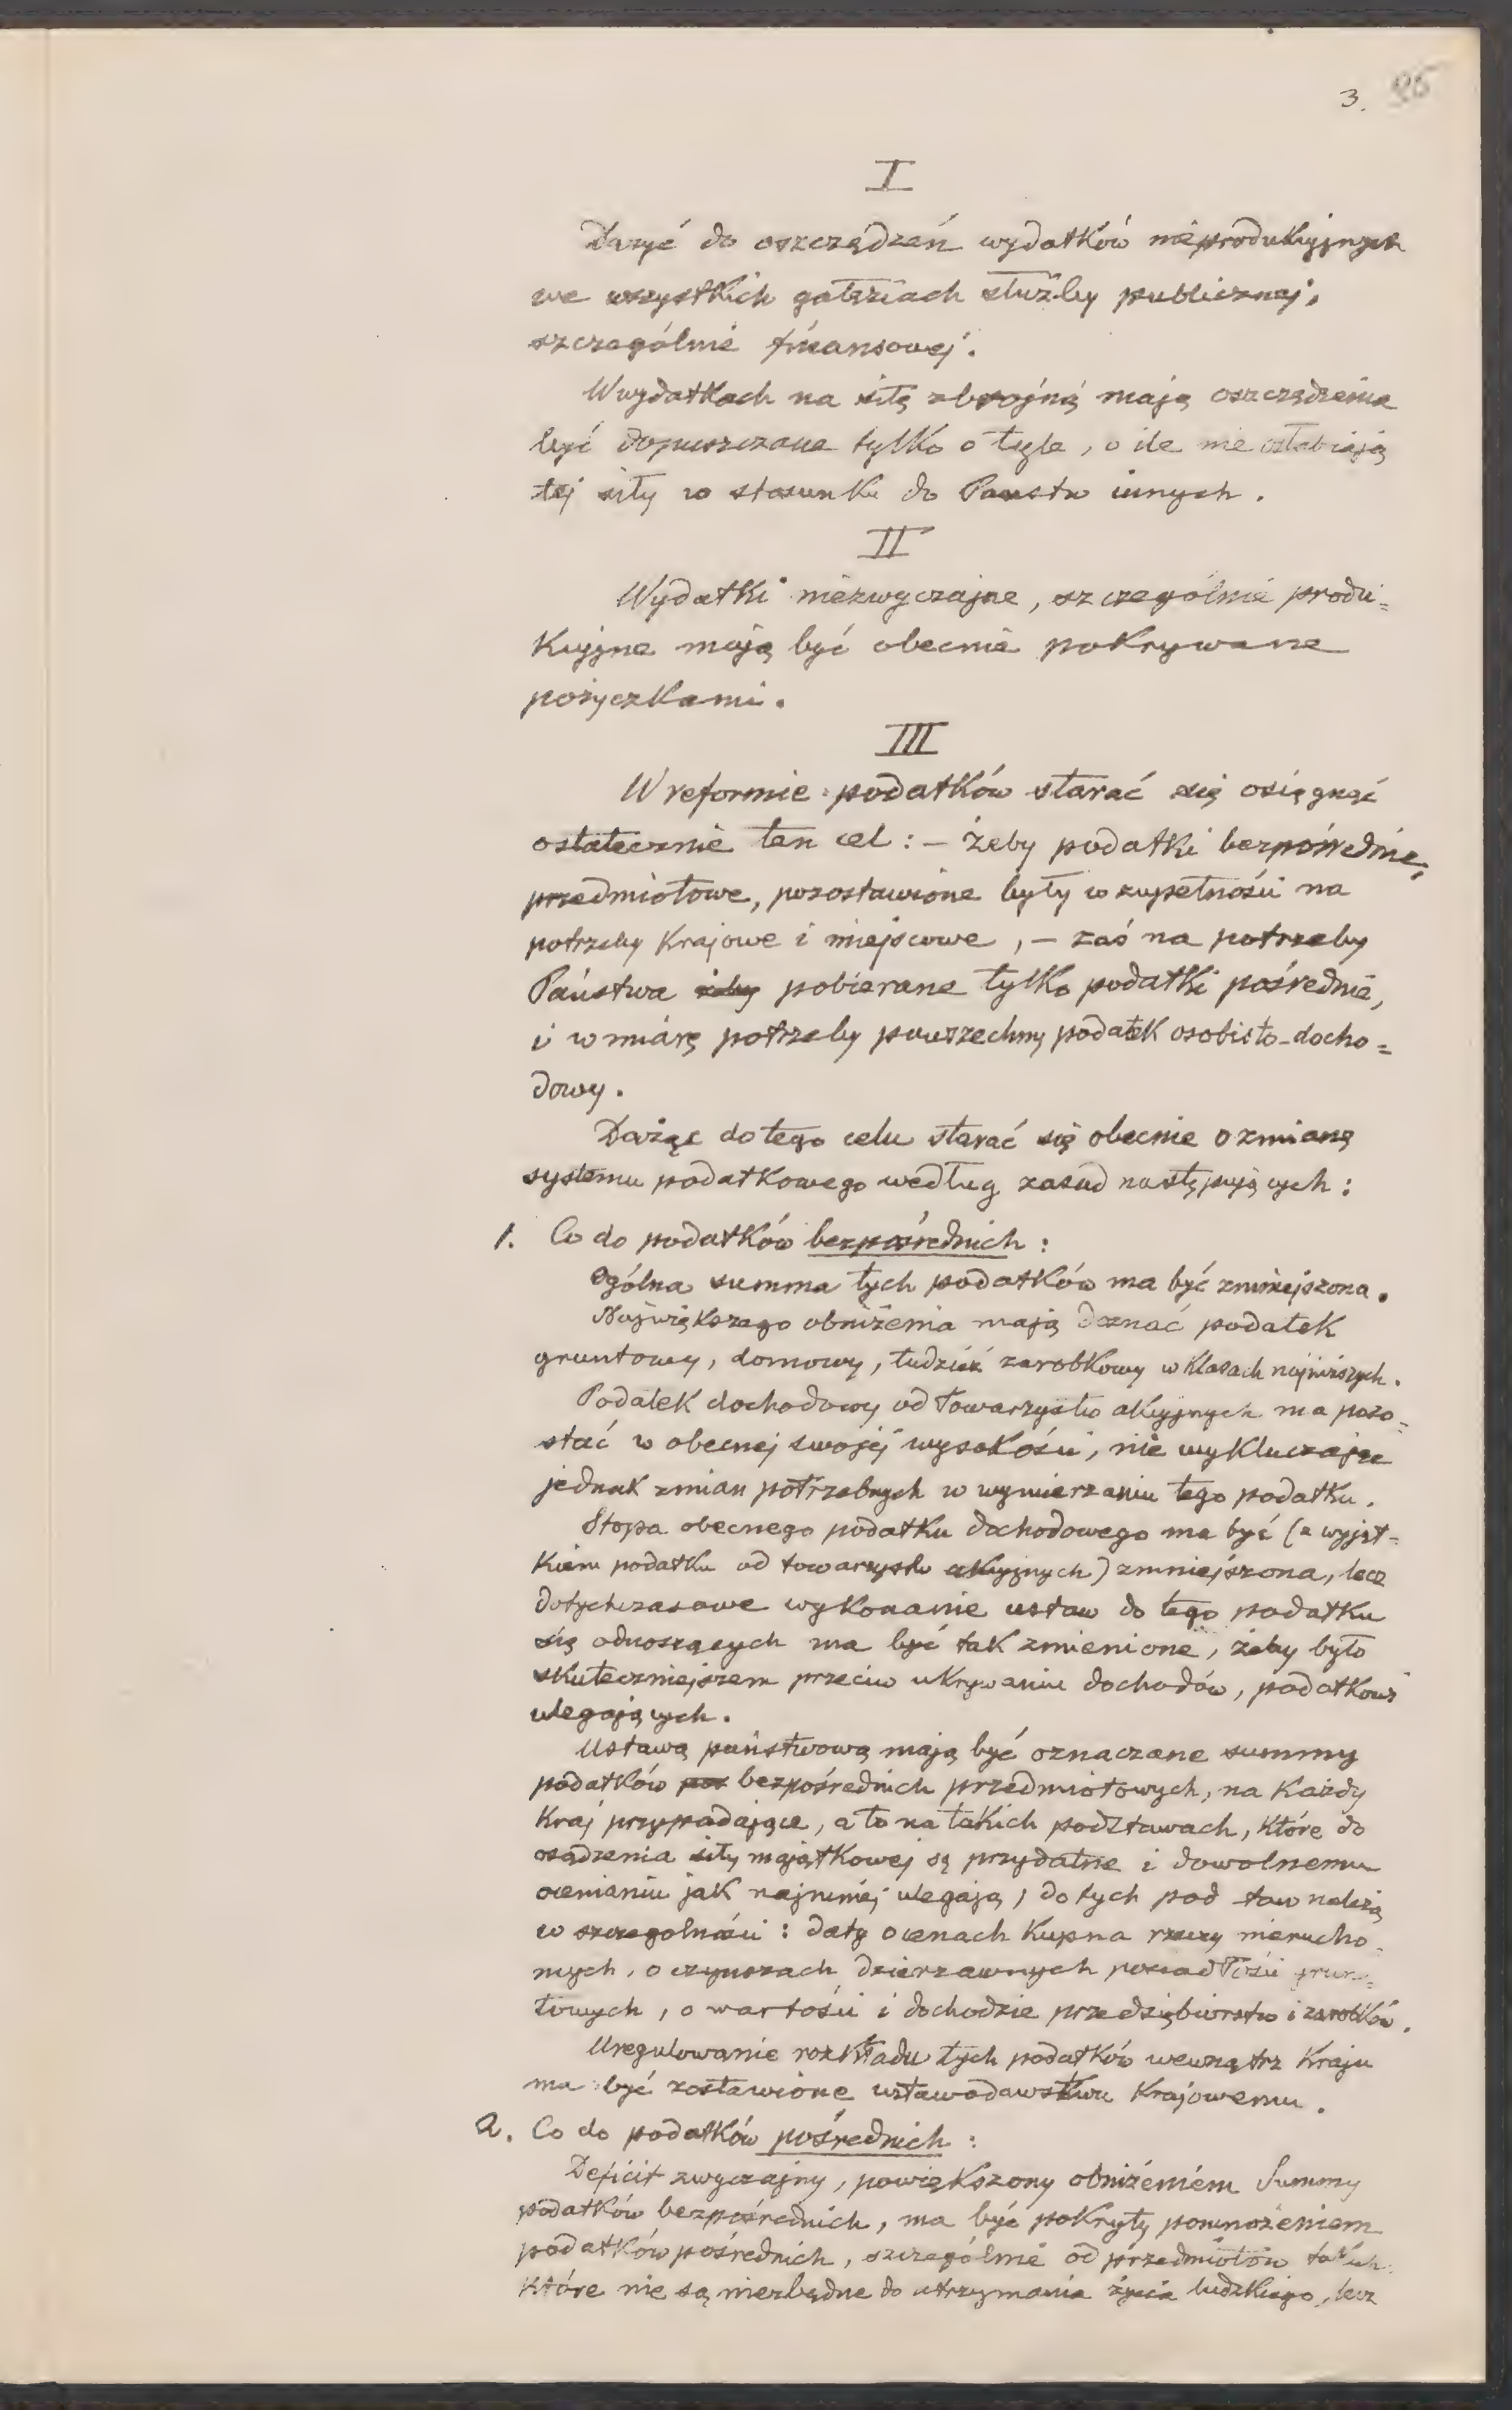 3.
I
Dążyć do oszczędzeń wydatków nieprodukcyjnych
we wszystkich gałęziach służby publicznej,
szczególnie finansowej.
W wydatkach na siłę zbrojną mają oszczędzenia
być dopuszczane tylko o tyle, o ile nie osłabiają
tej siły w stosunku do Państw innych.
II
Wydatki niezwyczajne, szczególnie produ=
kcyjne mają być obecnie pokrywane
pożyczkami.
III
W reformie podatków starać się osięgnąć
ostatecznie ten cel: – żeby podatki bezpośrednie,
przedmiotowe, pozostawione były w zupełności na
potrzeby krajowe i miejscowe, – zaś na potrzeby
Państwa żeby pobierane tylko podatki pośrednie,
i w miarę potrzeby powszechny podatek osobisto-docho=
dowy.
Dążąc do tego celu starać się obecnie o zmianę
systemu podatkowego według zasad następujących:
1. Co do podatków bezpośrednich:
Ogólna summa tych podatków ma być zmniejszona.
Największego obniżenia mają doznać podatek
gruntowy, domowy, tudzież zarobkowy w klasach najniższych.
Podatek dochodowy od Towarzystw akcyjnych ma pozo=
stać w obecnej swojej wysokości, nie wykluczając
jednak zmian potrzebnych w wymierzaniu tego podatku.
Stopa obecnego podatku dochodowego ma być (z wyjąt=
kiem podatku od towarzystw akcyjnych) zmniejszona, lecz
dotychczasowe wykonanie ustaw do tego podatku
się odnoszących ma być tak zmienione, żeby było
skuteczniejszem przeciw ukrywaniu dochodów, podatkowi
ulegających.
Ustawą państwową mają być oznaczane summy
podatków pos bezpośrednich przedmiotowych, na każdy
kraj przypadające, a to na takich podstawach, które do
osądzenia siły majątkowej są przydatne i dowolnemu
ocenianiu jak najmniej ulegają; do tych pod staw należą
w szczególności: daty o cenach kupna rzeczy nierucho=
mych, o czynszach dzierżawnych posiadłości grun=
towych, o wartości i dochodzie przedsiębiorstw i zarobków.
Uregulowanie rozkładu tych podatków wewnątrz kraju
ma być zostawione ustawodawstwu krajowemu.
2. Co do podatków pośrednich:
Deficit zwyczajny, powiększony obniżeniem Summy
podatków bezpośrednich, ma być pokryty pomnożeniem
podatków pośrednich, szczególnie od przedmiotów takich
które nie są niezbędne do utrzymania życia ludzkiego, lecz